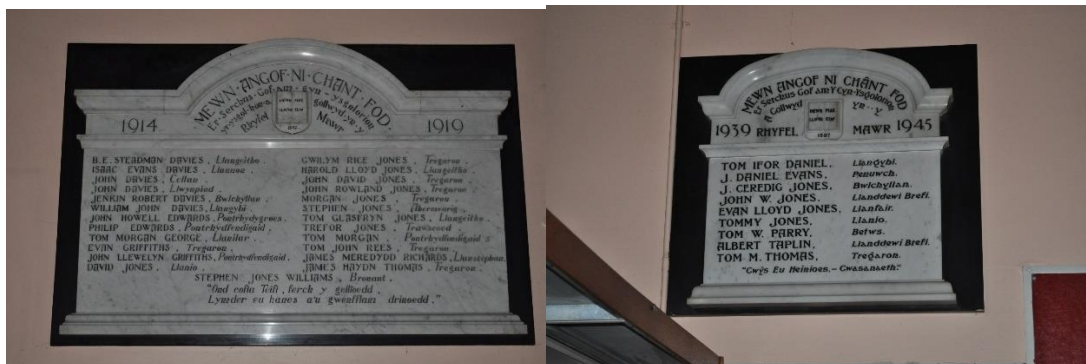 MEWN·ANGOF·NI·CHANT·FOD.
Er·Serchus·Gof·am·y·cyn-Ysgolorion
gollwyd·yn·y
Rhyfel Mawr
1914 1919
B.E. STEADMAN DAVIES, Llangeitho.
ISAAC EVANS DAVIES, Llannon.
JOHN DAVIES, Cellan
JOHN DAVIES, Llwynpiod
JENKIN ROBERT DAVIES, Bwlchyllan
WILLIAM JOHN DAVIES, Llangybi
JOHN HOWELL EDWARDS, Pontrhydygroes
PHILIP EDWARDS, Pontrhydfendigaid
TOM MORGAN GEORGE, Llanilar
EVAN GRIFFITHS, Tregaron
JOHN LLEWELYN GRIFFITHS, Pontrhydfendigaid.
DAVID JONES, Llanio
GWILYM RICE JONES, Tregaron
HAROLD LLOYD JONES, Llangeitho
JOHN DAVID JONES, Tregaron
JOHN ROWLAND JONES, Tregaron
MORGAN JONES, Tregaron
STEPHEN JONES,
TOM GLASFRYN JONES, Llangeitho
TREFOR JONES, Trawscoed
TOM MORGAN, Pontrhydfendigaid
TOM JOHN REES, Tregaron
JAMES MEREDYDD RICHARDS,
JAMES HAYDN THOMAS, Tregaron.
STEPHEN JONES WILLIAMS, Bronant.
"Ond cofia Teifi, ferch y gelltoedd,
Lymder eu hanes a'u gwenfflam drinoedd."
MEWN ANGOF NI CHÂNT FOD
Er Serchus Gof am Y Cyn-Ysgolorion
a Gollwyd Yn··Y
1939 RHYFEL MAWR 1945
TOM IFOR DANIEL, Llangybi.
J. DANIEL EVANS, Penuwch.
J. CEREDIG JONES, Bwlchyllan.
JOHN W. JONES, Llanddewi Brefi.
EVAN LLOYD JONES, Llanfair.
TOMMY JONES, Llanio.
TOM W. PARRY, Betws.
ALBERT TAPLIN, Llanddewi Brefi.
TOM M. THOMAS, Tregaron.
"Gwŷs Eu Heinioes,- Gwasanaeth."